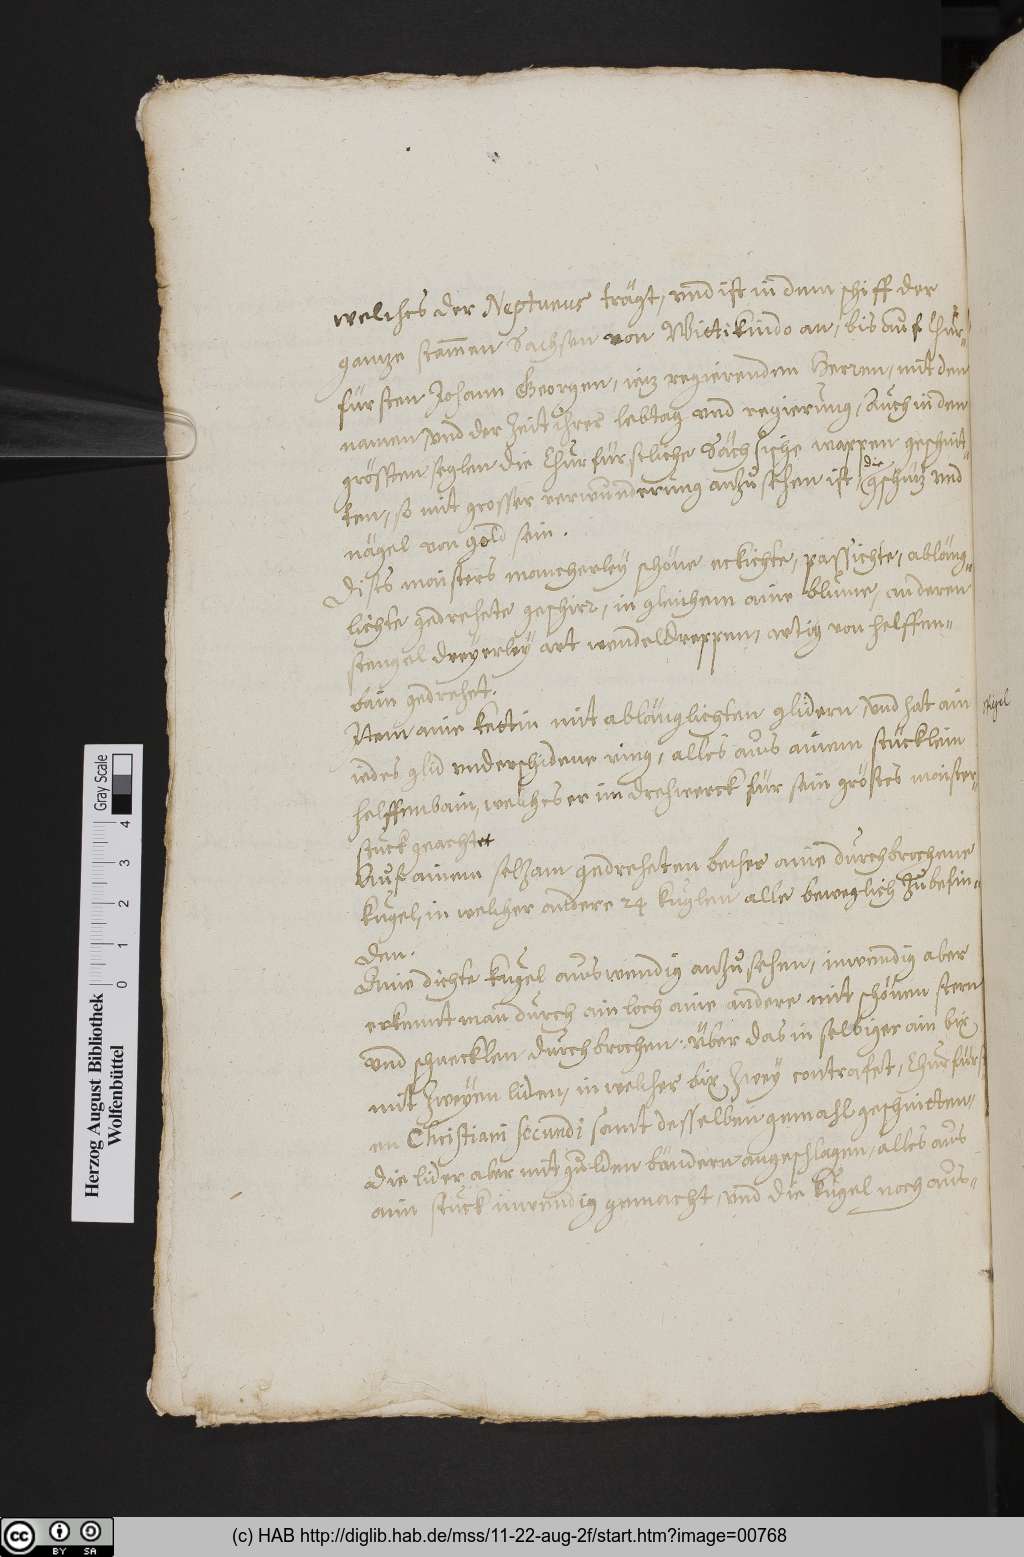 welches der Neptunus trägt, vnd ist in dem schiff der
gantze stammen Sachsen von Wittikindo an, bis auf Chur-
fürsten Johann Georgen, ietz regierenden Herren, mit den
namen, vnd der zeit ihrer lebtag vnd regierung, Auch in den
grössten seglen die Churfürstliche Sächsische wappen geschnit-
ten, so mit grosser verwunderung anzusehen ist, die gschütz vnd
nägel von gold sein.
Dists maisters mancherley schöne eckichte, passichte, abläng-
lichte gedrehete geschirr, in gleichem aine blume, anderen
stengel dreyerley art wendeldreppen, artig von helffen-
bain gedrehet.
Item aine kettin mit ablänglichten glidern, vnd hat ain
iedes glid vnderschidene ring, alles aus ainem stücklein
helffenbain, welches er im drehwerck für sein gröstes maister-
stuck geachtet
Auf ainem seltzam gedreheten becher aine durchbrochene
kugel, in welcher andere 24 kuglen alle beweglich zu befin-
den.
Eine dichte kugel auswendig anzusehen, inwendig aber
erkennt man durch ain loch aine andere mit schönen stern
vnd schnecklen durchbrochen. Über das in selbiger ain bix
mit zweyen liden, in welcher bix zwey contrafet, Churfürst-
en Christiani secundi samt desselben gemahl geschnitten,
die lider aber mit gulden bändern angeschlagen, alles aus
ain stuck inwendig gemacht, vnd die kugel noch aus-
Herzog August Bibliothek
Wolfenbüttel
0 1 2 3 4
Gray Scale
cc BY SA
(c) HAB http://diglib.hab.de/mss/11-22-aug-2f/start.htm?image=00768